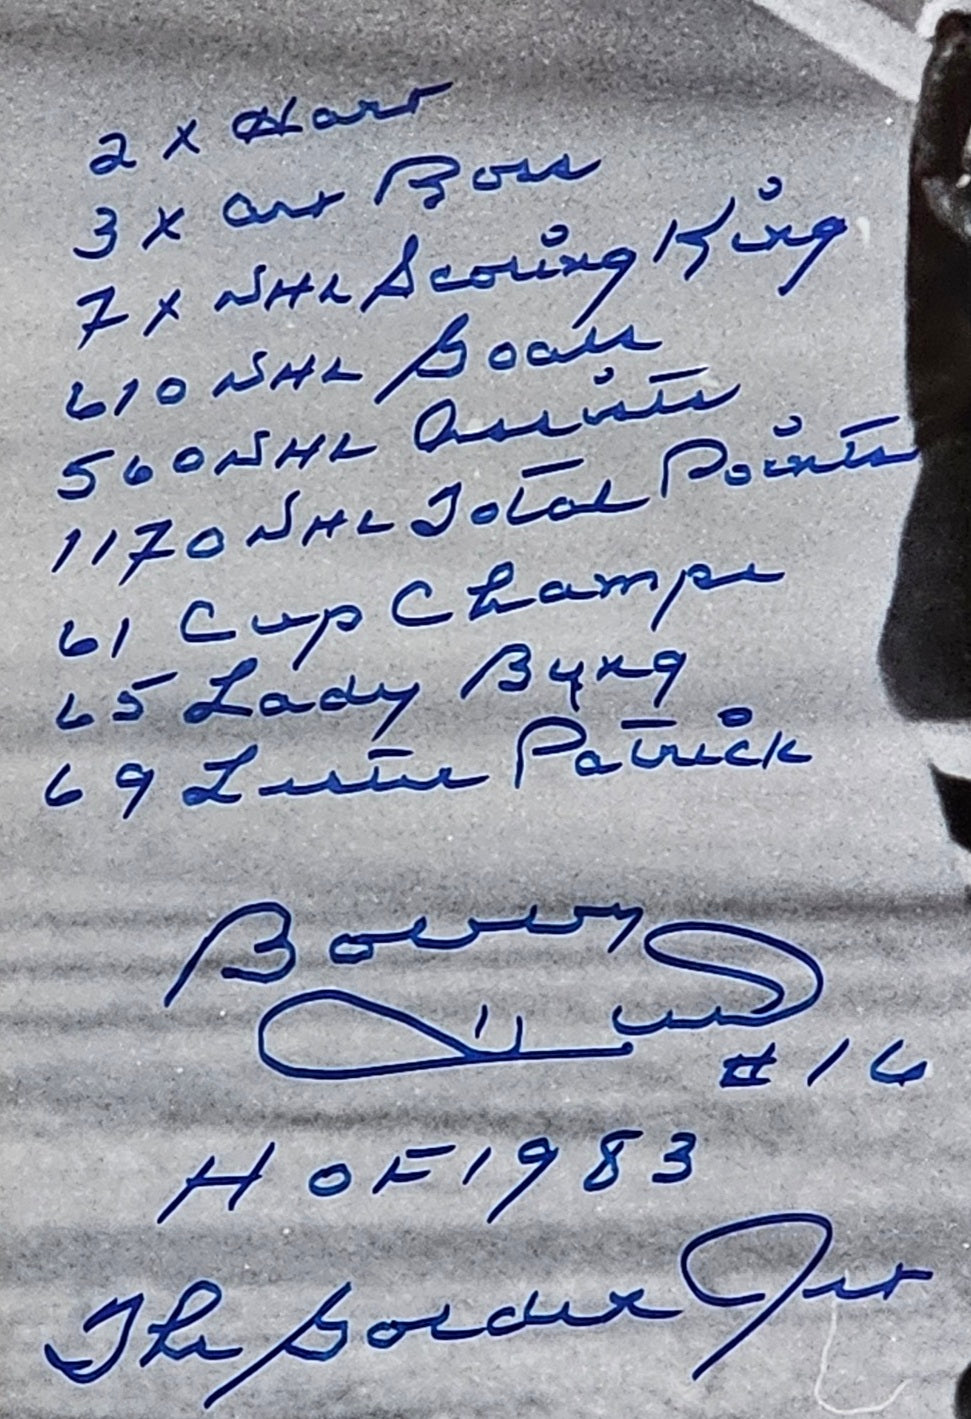 2 x Hart
3 x Art Ross
7 x NHL Scoring King
610 NHL Goals
560 NHL Assists
1170 NHL Total Points
61 Cup Champs
65 Lady Byng
69 Lester Patrick
Bobby Hull
#16
HOF 1983
The Golden Jet